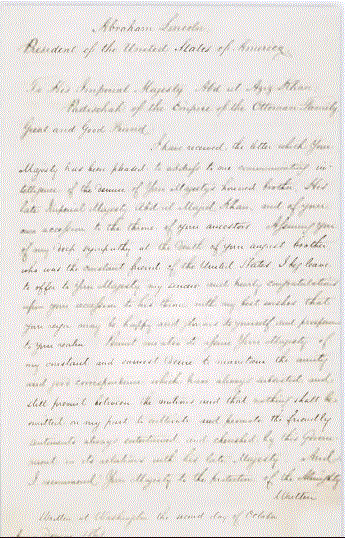 Abraham Lincoln
President of the United States of America
To His Imperial Majesty Abd ul Aziz Khan
Padischah of the Empire of the Ottoman Family
Great and Good Friend,
I have received the letter which Your
Majesty has been pleased to address to me communicating in-
telligence of the demise of Your Majesty's honored brother His
late Imperial Majesty Abd ul Majid Khan, and of your
own accession to the throne of your ancestors. Assuring you
of my deep sympathy at the death of your august brother
who was the constant friend of the United States I beg leave
to offer to Your Majesty my sincere and hearty congratulations
upon your accession to his throne with my best wishes that
your reign may be happy and to yourself and prosperous
to your realm. Permit me also to assure Your Majesty of
my constant and earnest desire to maintain the amity
and good correspondence which have always subsisted and
still prevail between the nations and that nothing shall be
omitted on my part to cultivate and promote the friendly
sentiments always entertained and cherished by this Govern-
ment in its relations with his late Majesty. And
I recommend Your Majesty to the protection of the Almighty
Written
Written at Washington the second day of October